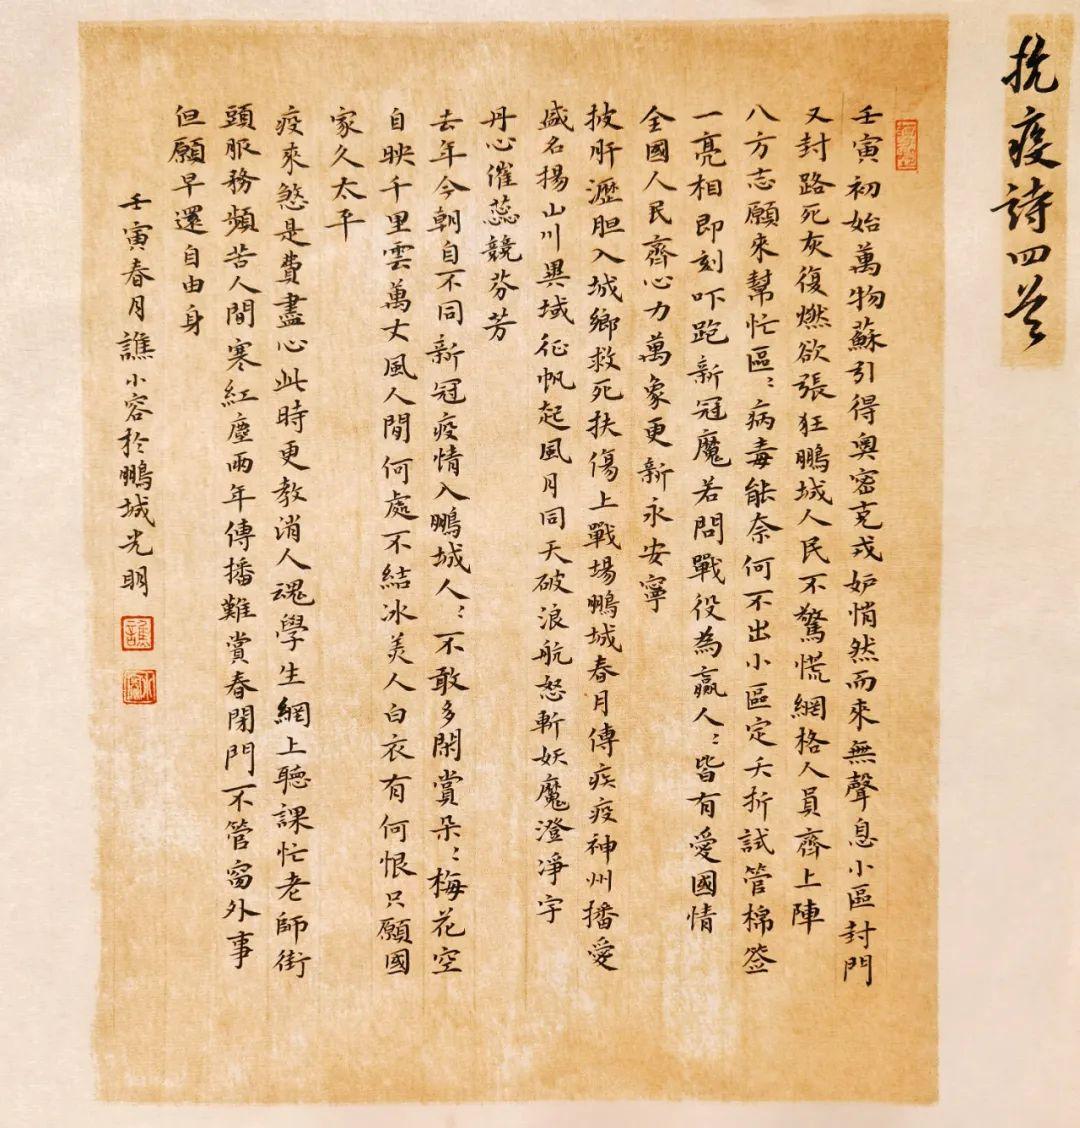 抗疫詩四首
壬寅初始萬物蘇引得奧密克戎妒悄然而來無聲息小區封門
又封路死灰復燃欲張狂鵬城人民不驚慌網格人員齊上陣
八方志願來幫忙區〻病毒能奈何不出小區定夭折試管棉簽
一亮相即刻吓跑新冠魔若問戰役為贏人〻皆有愛國情
全國人民齊心力萬象更新永安寧
披肝瀝胆入城鄉救死扶傷上戰場鵬城春月傳疾疫神州播愛
盛名揚山川異域征帆起風月同天破浪航怒斬妖魔澄淨宇
丹心催蕊競芬芳
去年今朝自不同新冠疫情入鵬城人〻不敢多閑賞朵〻梅花空
自映千里雲萬丈風人間何處不結冰美人白衣有何恨只願國
家久太平
疫來愁是費盡心此時更教消人魂學生網上聽課忙老師街
頭服務頻苦人間寒紅塵兩年傳播難賞春閉門不管窗外事
但願早還自由身
壬寅春月譙小容於鵬城光明